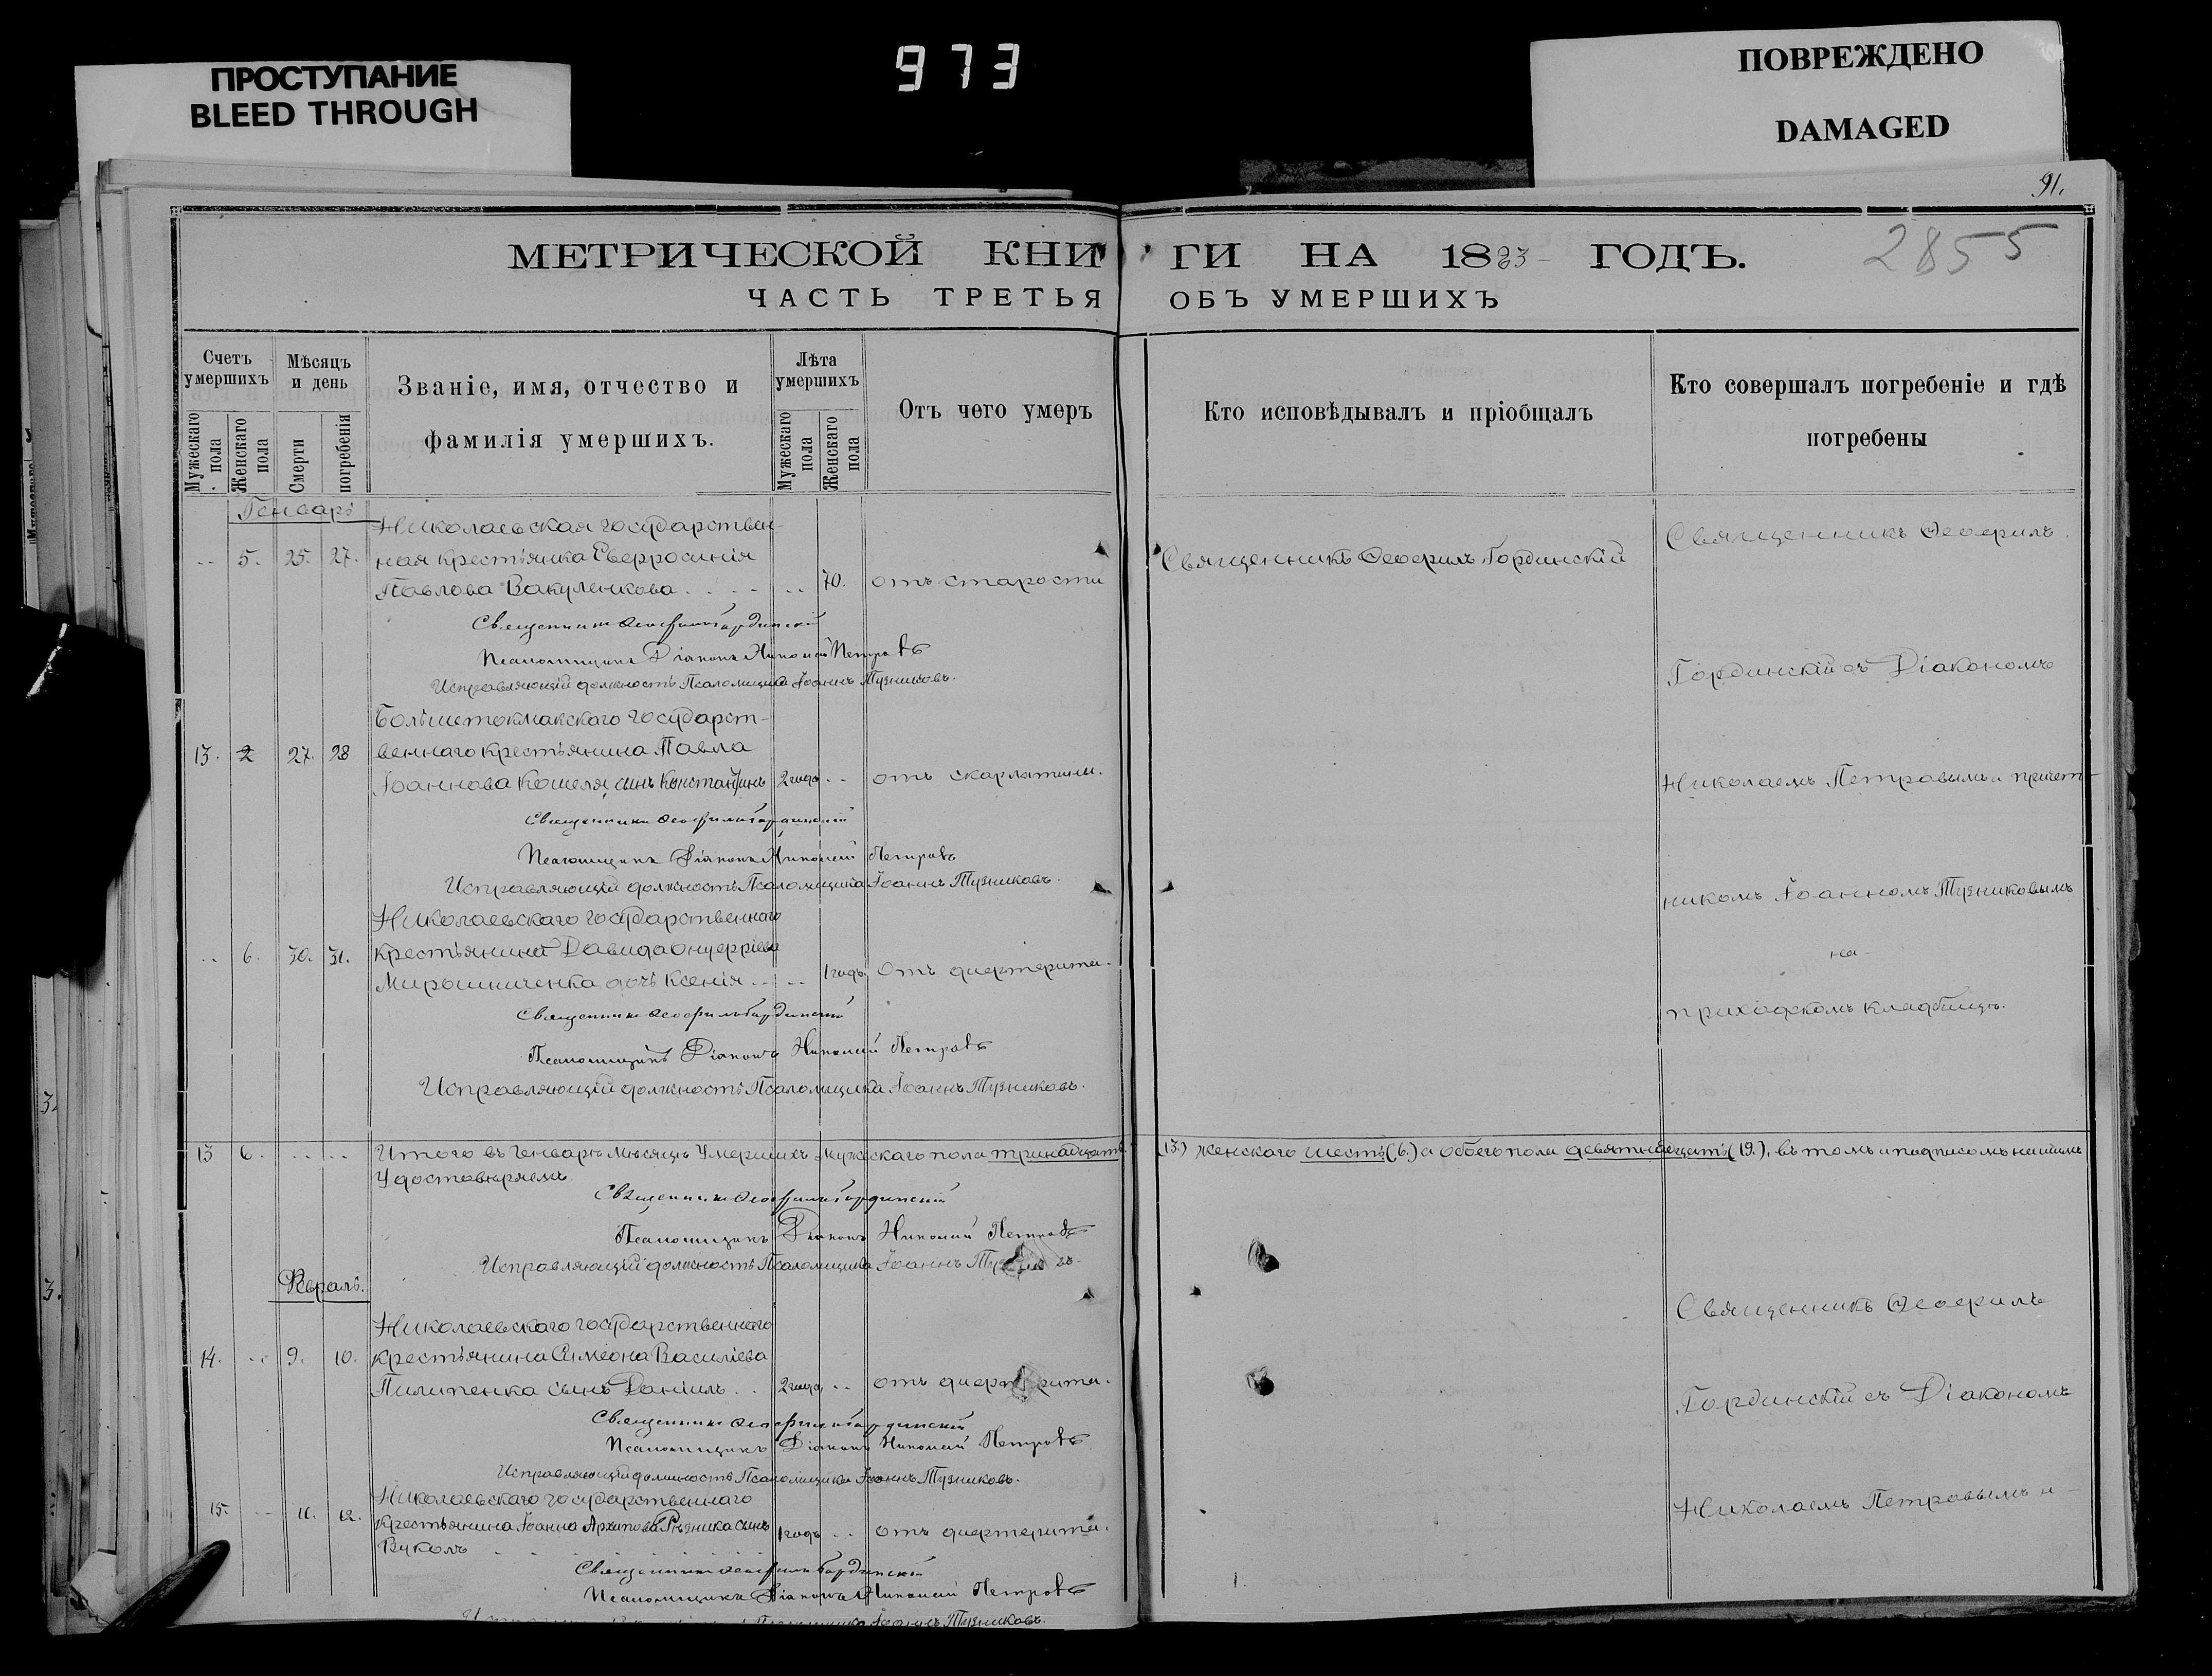 ПРОСТУПАНИЕ
BLEED THROUGH
973
ПОВРЕЖДЕНО
DAMAGED
91.
2855
МЕТРИЧЕСКОЙ КНИГИ НА 1883 ГОДЪ.
ЧАСТЬ ТРЕТЬЯ ОБЪ УМЕРШИХЪ
Счетъ умершихъ
Мужескаго пола
Женскаго пола
Мѣсяцъ и день
Смерти
погребенія
Званіе, имя, отчество и
фамилія умершихъ.
Лѣта умершихъ
Мужескаго пола
Женскаго пола
Отъ чего умеръ
Кто исповѣдывалъ и пріобщалъ
Кто совершалъ погребеніе и гдѣ
погребены
Генварь
Николаевская государствен-
5. 25. 27. ная крестьянка Евфросинія
Павлова Вакуленкова 70. отъ старости
Священникъ Ѳеофилъ Гординскій
Священникъ Ѳеофилъ Гординскій
Псаломщикъ Діаконъ Николай Петровъ
Исправляющій должность Псаломщика Іоаннъ Тузниковъ.
Священникъ Ѳеофилъ
Гординскій съ Діакономъ
Николаемъ Петровымъ и причет-
никомъ Іоанномъ Тузниковымъ
на
приходскомъ кладбищѣ.
Большетокмакскаго государст-
13. 2 27. 28 веннаго крестьянина Павла
Іоаннова Кошеля, сынъ Константинъ 2 года отъ скарлатини.
Священникъ Ѳеофилъ Гординскій
Псаломщикъ Діаконъ Николай Петровъ
Исправляющій должность Псаломщика Іоаннъ Тузниковъ.
Николаевскаго государственнаго
6. 30. 31. крестьянина Давида Онуфріева
Мирошниченка дочь Ксенія 1 годъ отъ дифтерита.
Священникъ Ѳеофилъ Гординскій
Псаломщикъ Діаконъ Николай Петровъ
Исправляющій должность Псаломщика Іоаннъ Тузниковъ.
13 6. Итого въ Генварѣ мѣсяцѣ умершихъ мужескаго пола тринадцать (13.) женскаго шесть (6.) а обоего пола девятнадцать (19.), въ томъ и подписомъ нашимъ
Удостовѣряемъ
Священникъ Ѳеофилъ Гординскій
Псаломщикъ Діаконъ Николай Петровъ
Исправляющій должность Псаломщика Іоаннъ
Февраль.
Николаевскаго государственнаго
14. 9. 10. крестьянина Симеона Василіева
Пилипенка сынъ Даніилъ 2 года отъ дифтерита.
Священникъ Ѳеофилъ Гординскій
Псаломщикъ Діаконъ Николай Петровъ
Исправляющій должность Псаломщика Іоаннъ Тузниковъ.
Священникъ Ѳеофилъ
Гординскій съ Діакономъ
Николаемъ Петровымъ и
Николаевскаго государственнаго
15. 11. 12. крестьянина Іоанна Архипова Рѣзника сынъ
Вуколъ 1 годъ отъ дифтерита.
Священникъ Ѳеофилъ Гординскій
Псаломщикъ Діаконъ Николай Петровъ
Іоаннъ Тузниковъ.